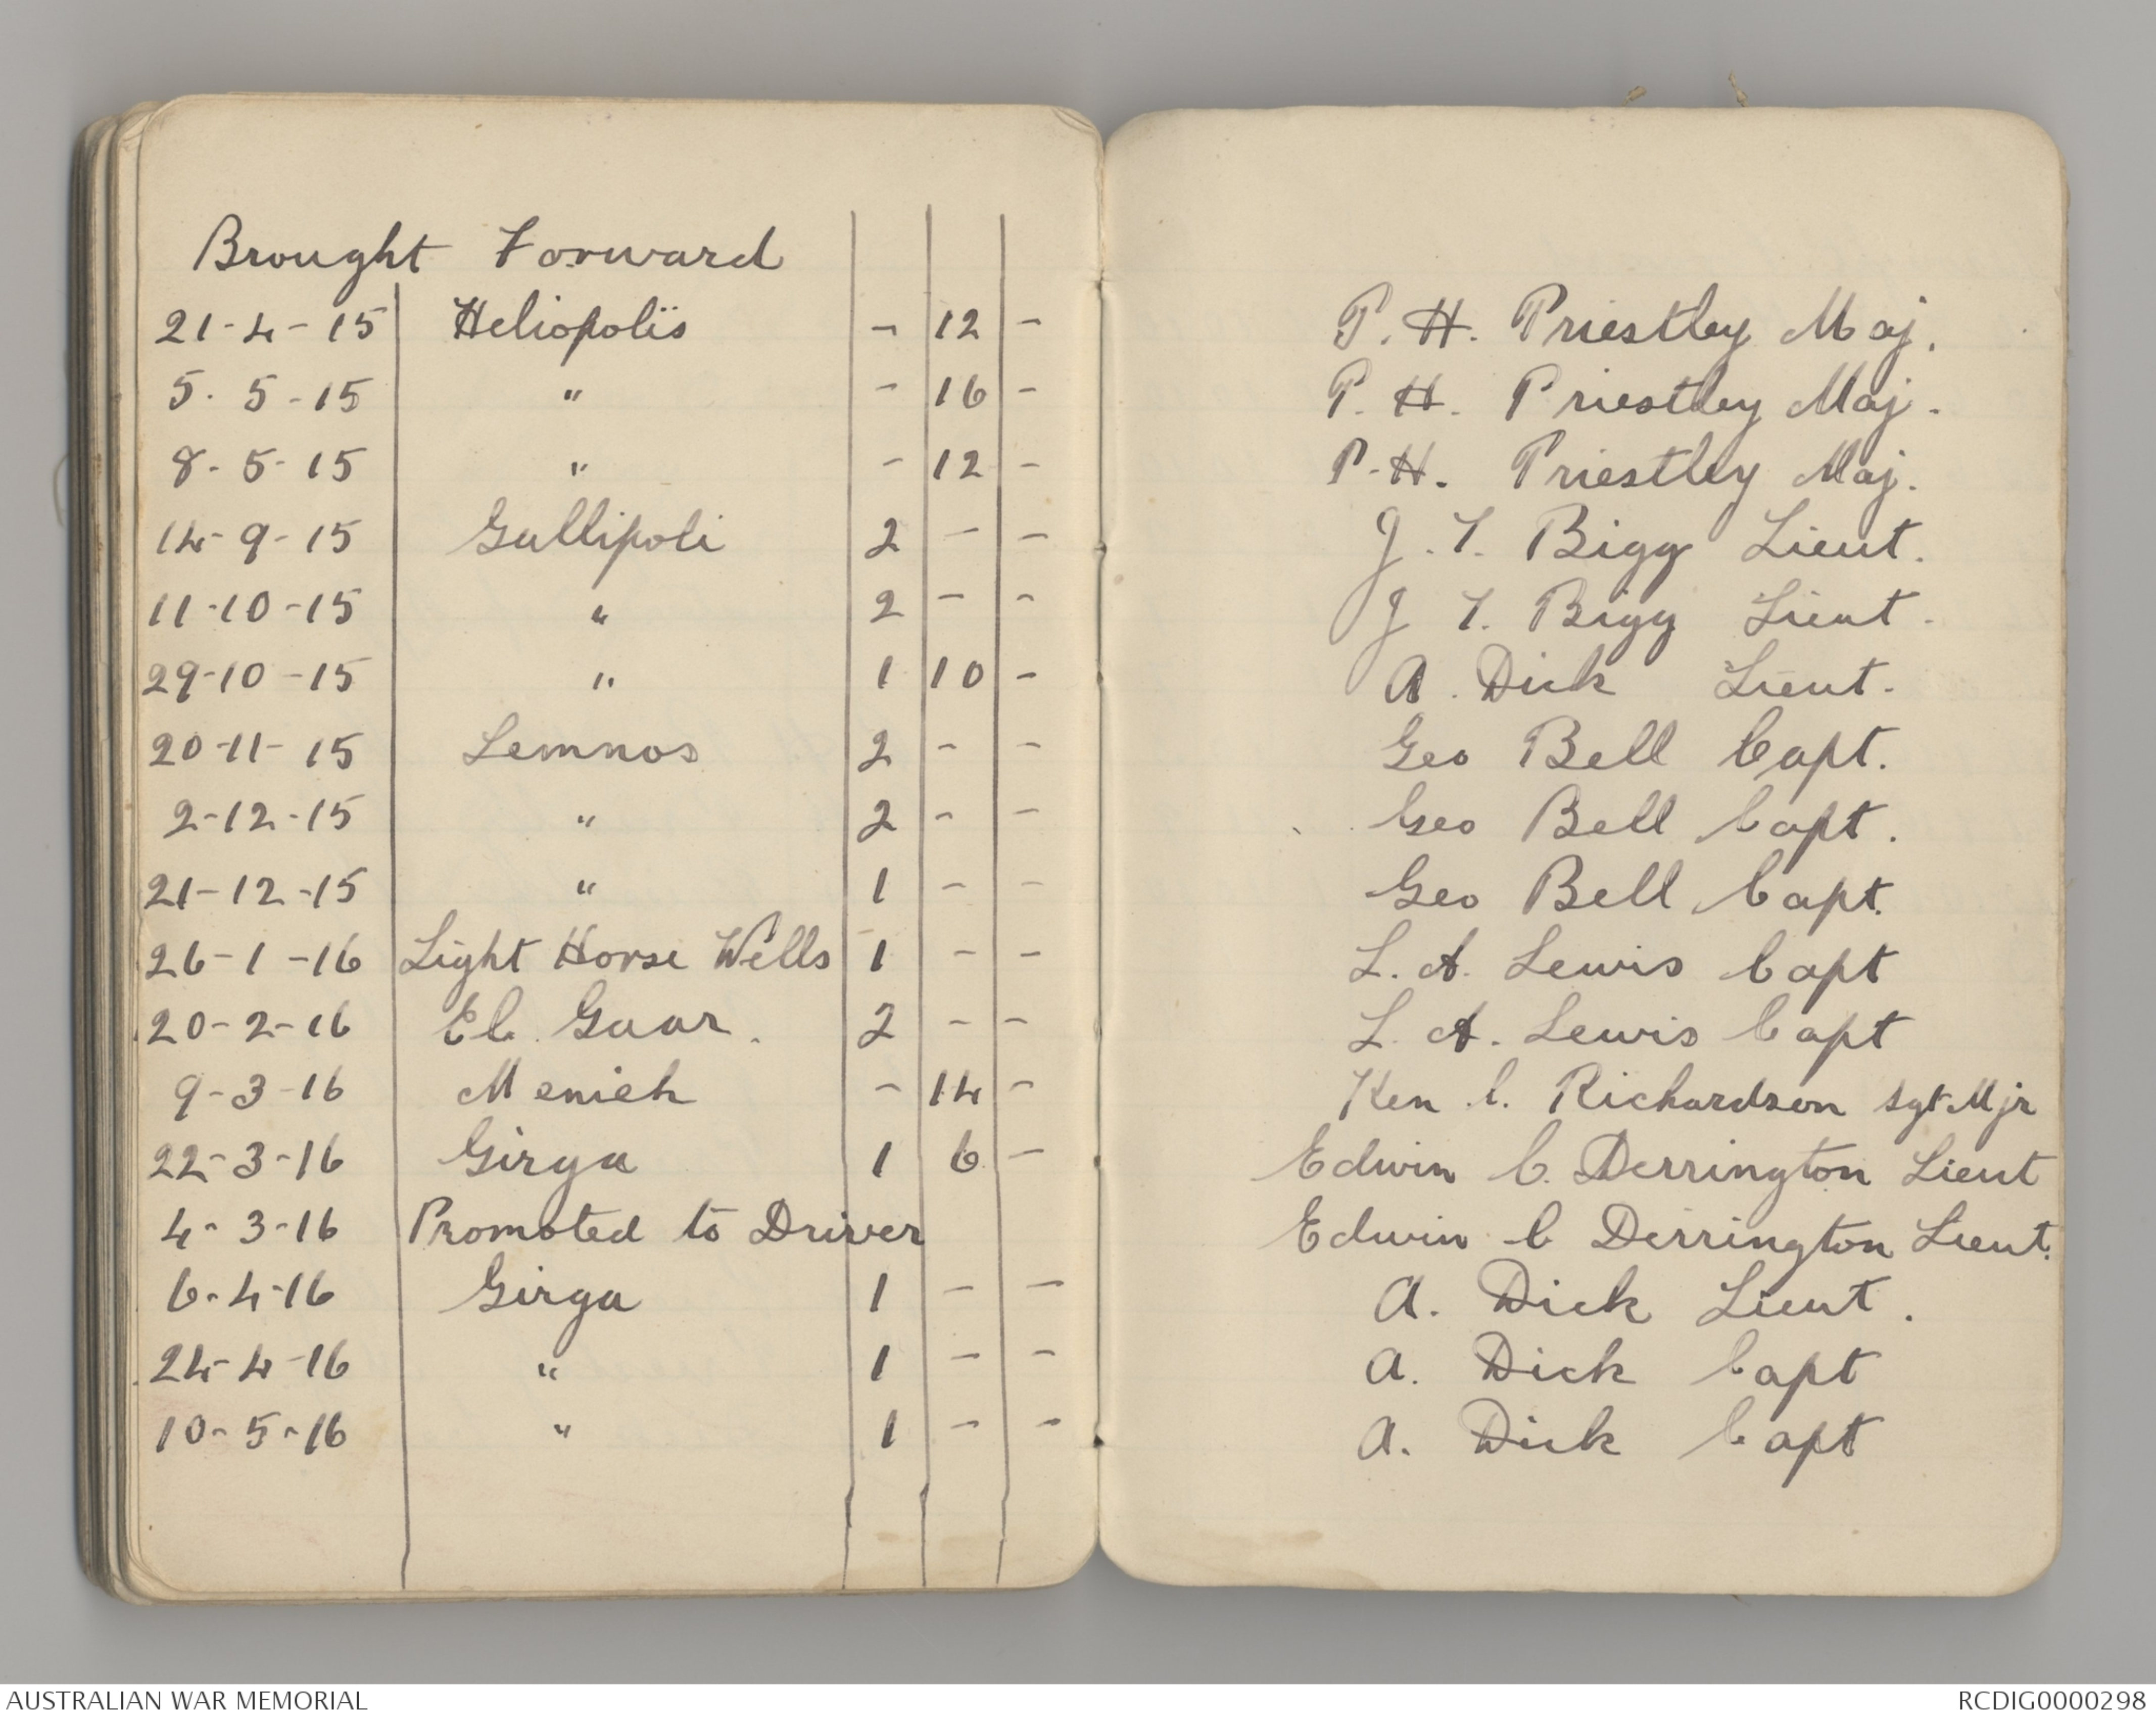 Brought Forward
21-4-15 Heliopolis - 12 - P. H. Priestley Maj.
5. 5-15 " - 16 - P. H. Priestley Maj.
8-5-15 " - 12 - P.H. Priestley Maj.
14-9-15 Gallipoli 2 - - J. T. Bigg Lieut.
11-10-15 " 2 - - J T. Bigg Lieut.
29-10-15 " 1 10 - A. Dick Lieut.
20-11-15 Lemnos 2 - - Geo Bell Capt.
2-12-15 " 2 - - Geo Bell Capt.
21-12-15 " 1 - - Geo Bell Capt.
26-1-16 Light Horse Wells 1 - - L. A. Lewis Capt
20-2-16 El. Gaar. 2 - - L. A. Lewis Capt
9-3-16 Menieh - 14 - Ken C. Richardson Sgt Mjr
22-3-16 Girga 1 6 - Edwin C. Derrington Lieut
4-3-16 Promoted to Driver Edwin C Derrington Lieut.
6-4-16 Girga 1 - - A. Dick Lieut.
24-4-16 " 1 - - A. Dick Capt
10-5-16 " 1 - - A. Dick Capt
AUSTRALIAN WAR MEMORIAL RCDIG0000298